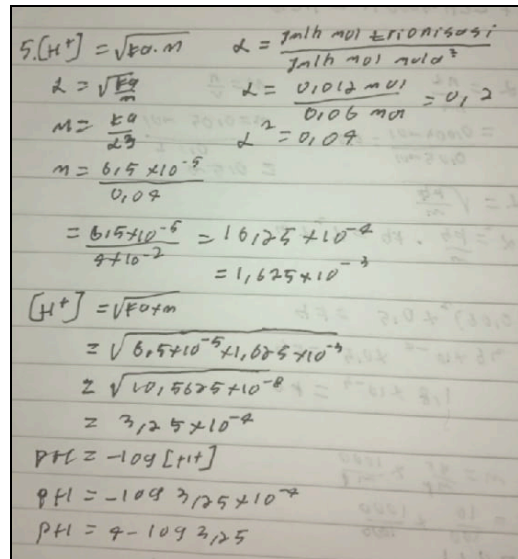 5. [H⁺] = √Ka.M   α = Jmlh mol terionisasi / Jmlh mol mula²
α = √Ka/M   α = 0,012 mol / 0,06 mol = 0,2
M = Ka/α²   α² = 0,04
M = 6,5 × 10⁻⁵ / 0,04
= 6,5 × 10⁻⁵ / 4 × 10⁻² = 16,25 × 10⁻⁴
= 1,625 × 10⁻³
[H⁺] = √Ka × M
= √6,5 × 10⁻⁵ × 1,625 × 10⁻³
= √10,5625 × 10⁻⁸
= 3,25 × 10⁻⁴
PH = -log [H+]
PH = -log 3,25 × 10⁻⁴
PH = 4 - log 3,25